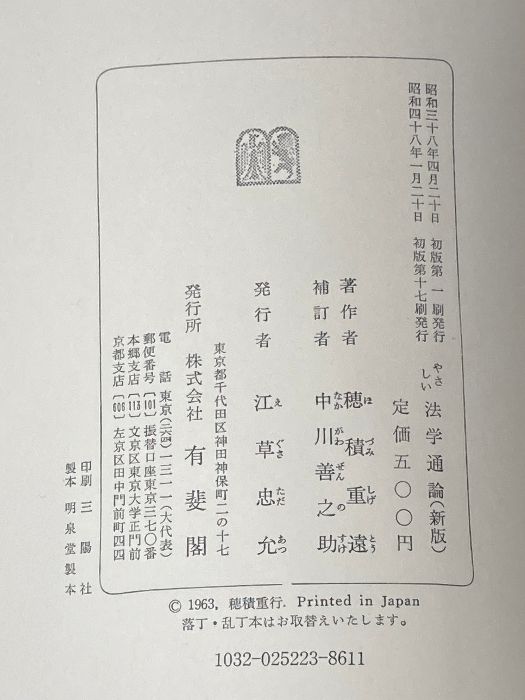 昭和三十八年四月二十日　初版第一刷発行
昭和四十八年一月二十日　初版第十七刷発行
やさしい　法学通論（新版）
定価五〇〇円
著作者　穂積重遠
ほづみしげとう
補訂者　中川善之助
なかがわぜんのすけ
発行者　江草忠允
えぐさただあつ
東京都千代田区神田神保町二の十七
発行所　株式会社　有斐閣
電話　東京（二六四）一三一一（大代表）
郵便番号〔101〕振替口座東京三七〇番
本郷支店〔113〕文京区東京大学正門前
京都支店〔606〕左京区田中門前町四四
印刷　三陽社
製本　明泉堂製本
© 1963, 穂積重行. Printed in Japan
落丁・乱丁本はお取替えいたします。
1032-025223-8611